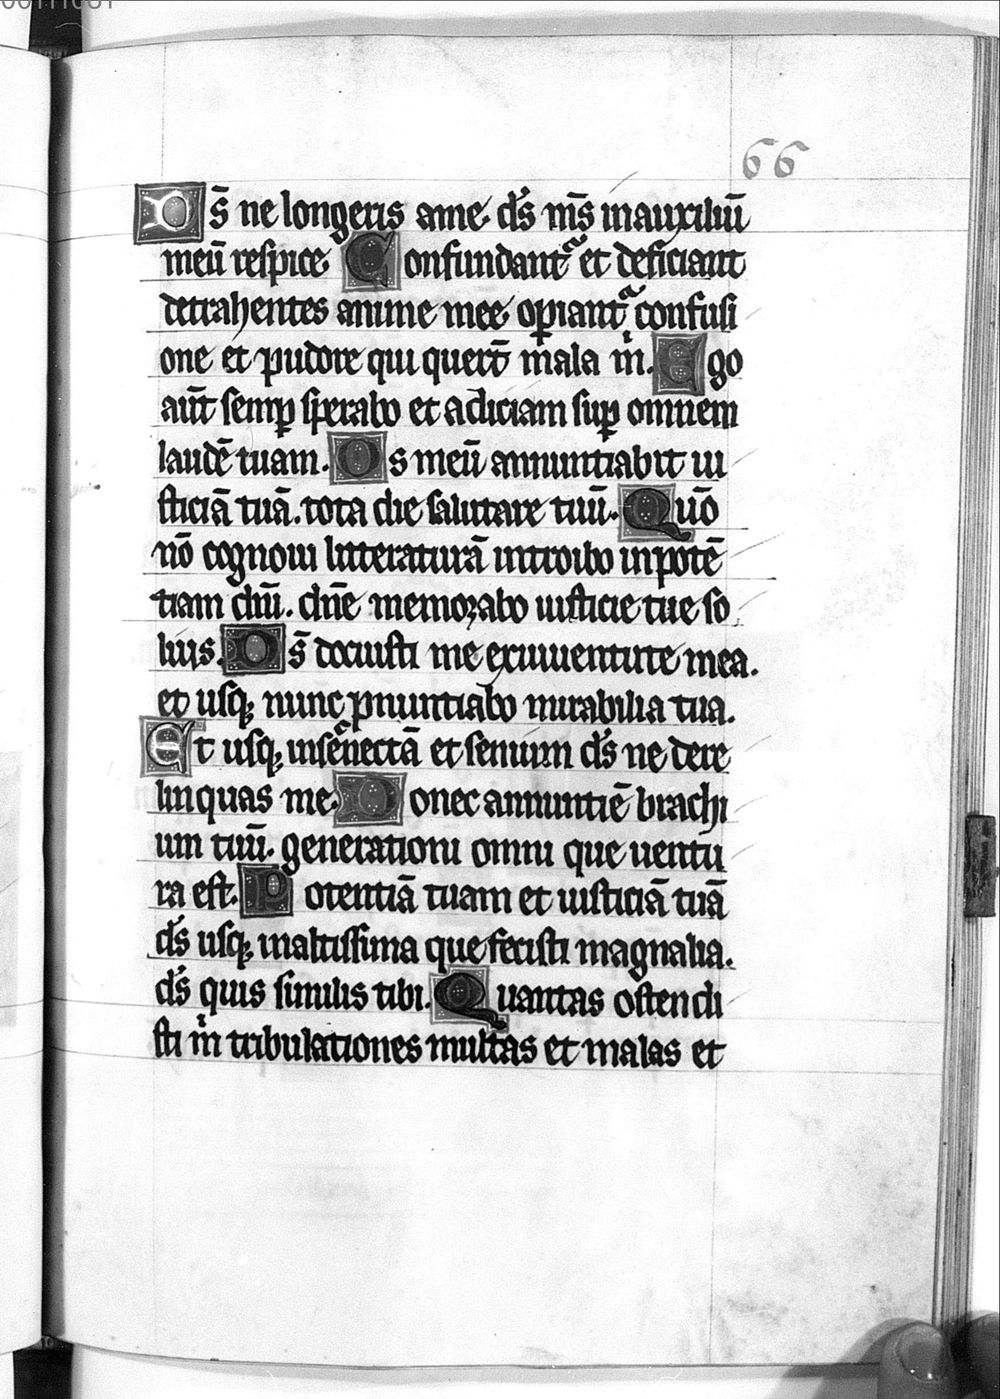 66
Ds̄ ne longeris ame. ds̄ ms̄ inauxiliū
meū respice. Confundantᷣ et deficiant
detrahentes anime mee. opiantᷣ confusi
one et pudore qui querūt mala mi. Ego
aūt semp sperabo et adiciam sup omnem
laudē tuam. Os meū annuntiabit iu
sticiā tuā. tota die salutare tuū. Quō
nō cognoui litteraturā introibo inpotē
tiam dn̄i. dn̄e memorabo iusticie tue so
lius. Ds̄ docuisti me exiuuentute mea.
et usqꝫ nunc pnuntiabo mirabilia tua.
Et usqꝫ insenectā et senium ds̄ ne dere
linquas me. Donec annuntiē brachi
um tuū. generationi omni que uentu
ra est. Potentiā tuam et iusticiā tuā
ds̄ usqꝫ inaltissima que fecisti magnalia.
ds̄ quis similis tibi. Quantas ostendi
sti mi tribulationes multas et malas et